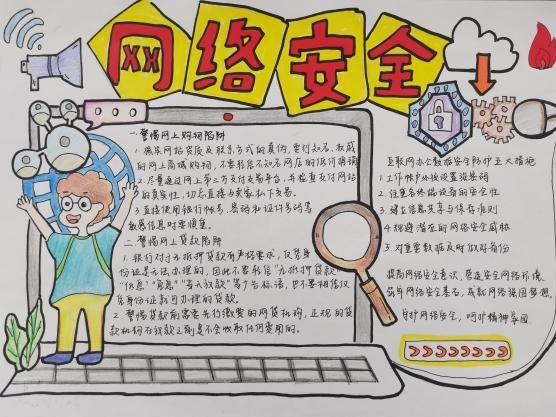 网络安全
一.警惕网上购物陷阱
1.核实网站资质及联系方式的真伪,要到知名、权威
的网上商城购物,不要轻信不知名网店的低价推销
2.尽量通过网上第三方支付交易平台,并检查支付网站
的真实性,切忌直接与卖家私下交易。
3.直接使用银行帐号、密码和证件号码等
敏感信息时要慎重。
二.警惕网上贷款陷阱
1.银行对于无抵押贷款有严格要求,仅凭身
份证是无法办理的,因此不要轻信"无抵押贷款"
"低息""免息""当天放款"等广告标语,也不要相信仅
凭身份证就可办理的贷款。
2.警惕贷款前需要先行缴费的网贷机构,正规的贷
款机构在放款之前是不会收取任何费用的。
互联网办公数据安全防护五大措施
1.工作帐户必须设置强密码
2.注重各终端设备的安全性
3.建立信息共享与保存准则
4.规避潜在的网络安全威胁
5.对重要数据及时做好备份
提高网络安全意识,营造安全网络环境,
筑牢网络安全基石,成就网络强国梦想。
网络安全,呵护精神家园